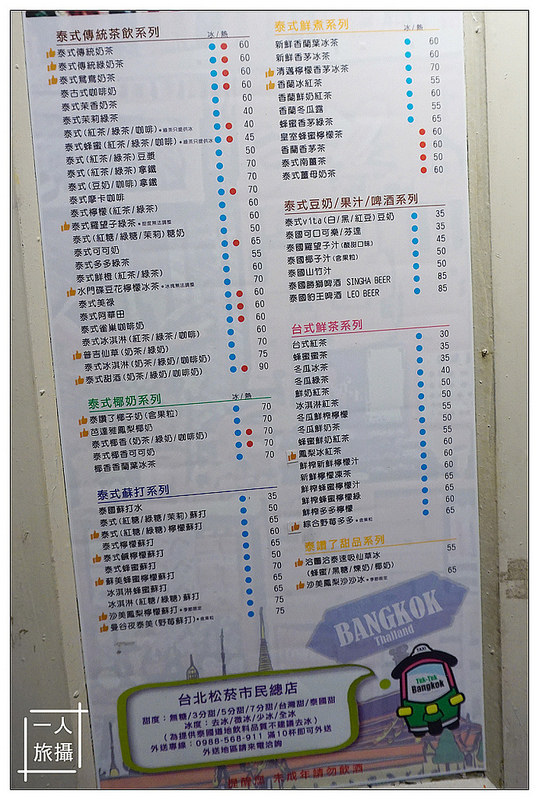 泰式傳統茶飲系列 冰/熱
泰式傳統奶茶 60
泰式傳統綠奶茶 60
泰式鴛鴦奶茶 60
泰古式咖啡奶 60
泰式茉香奶茶 60
泰式茉莉綠茶 40
泰式(紅茶/綠茶/咖啡) 40
泰式蜂蜜(紅茶/綠茶/咖啡) 45
泰式(紅茶/綠茶)豆漿 50
泰式(紅茶/綠茶)拿鐵 70
泰式(豆奶/咖啡)拿鐵 70
泰式摩卡咖啡 70
泰式檸檬(紅茶/綠茶) 60
泰式羅望子綠茶 50
泰式(紅糖/綠糖/茉莉)糖奶 50
泰式可可奶 65
泰式多多綠茶 55
泰式鮮橙(紅茶/綠茶) 60
水門碟豆花檸檬冰茶 70
泰式美祿 60
泰式阿華田 60
泰式雀巢咖啡奶 60
泰式冰淇淋(紅茶/綠茶/咖啡) 60
普吉仙草(奶茶/綠奶) 70
泰式冰淇淋(奶茶/綠奶/咖啡奶) 75
泰式甜酒(奶茶/綠奶/咖啡奶) 90
泰式椰奶系列 冰/熱
泰讚了椰子奶(含果粒) 70
芭達雅鳳梨椰奶 70
泰式椰香(奶茶/綠奶/咖啡奶) 70
泰式椰香可可奶 70
椰香香蘭葉冰茶 70
泰式蘇打系列
泰國蘇打水 35
泰式(紅糖/綠糖/茉莉)蘇打 50
泰式(紅糖/綠糖)檸檬蘇打 60
泰式檸檬蘇打 65
泰式鹹檸檬蘇打 50
泰式蜂蜜蘇打 70
蘇美蜂蜜檸檬蘇打 65
冰淇淋蜂蜜蘇打 65
冰淇淋(紅糖/綠糖)蘇打 75
沙美鳳梨檸檬蘇打 75
曼谷夜泰美(野莓蘇打)
泰式鮮煮系列 冰/熱
新鮮香蘭葉冰茶 60
新鮮香茅冰茶 60
清邁檸檬香茅冰茶 70
香蘭冰紅茶 55
香蘭鮮奶紅茶 60
香蘭冬瓜露 55
蜂蜜香茅綠茶 65
皇室蜂蜜檸檬茶 60
香蘭香茅茶 60
泰式南薑茶 50
泰式薑母奶茶 60
泰式豆奶/果汁/啤酒系列
泰式vita(白/黑/紅豆)豆奶 35
泰國可口可樂/芬達 35
泰國羅望子汁(酸甜口味) 45
泰國椰子汁(含果粒) 50
泰國山竹汁 50
泰國勝獅啤酒 SINGHA BEER 85
泰國豹王啤酒 LEO BEER 85
台式鮮茶系列
台式紅茶 30
蜂蜜蜜茶 35
冬瓜冰茶 35
冬瓜綠茶 40
鮮奶紅茶 50
冰淇淋紅茶 50
冬瓜鮮榨檸檬 55
冬瓜鮮奶茶 50
蜂蜜鮮奶紅茶 55
鳳梨冰紅茶 60
鮮榨新鮮檸檬汁 60
新鮮檸檬凍茶 60
鮮榨蜂蜜檸檬汁 65
鮮榨蜂蜜檸檬綠 60
鮮榨多多檸檬 60
綜合野莓多多 65
泰讚了甜品系列
洽圖洽泰速吸仙草冰 55
(蜂蜜/黑糖/煉奶/椰奶)
沙美鳳梨沙沙冰 65
BANGKOK
Thailand
TAXI
Tuk-Tuk
Bangkok
台北松菸市民總店
甜度：無糖/3分甜/5分甜/7分甜/台灣甜/泰國甜
冰度：去冰/微冰/少冰/全冰
(為提供泰國道地飲料品質不建議去冰)
外送專線：0988-568-911 滿10杯即可外送
外送地區請來電洽詢
提醒您 未成年請勿飲酒
一人
旅攝